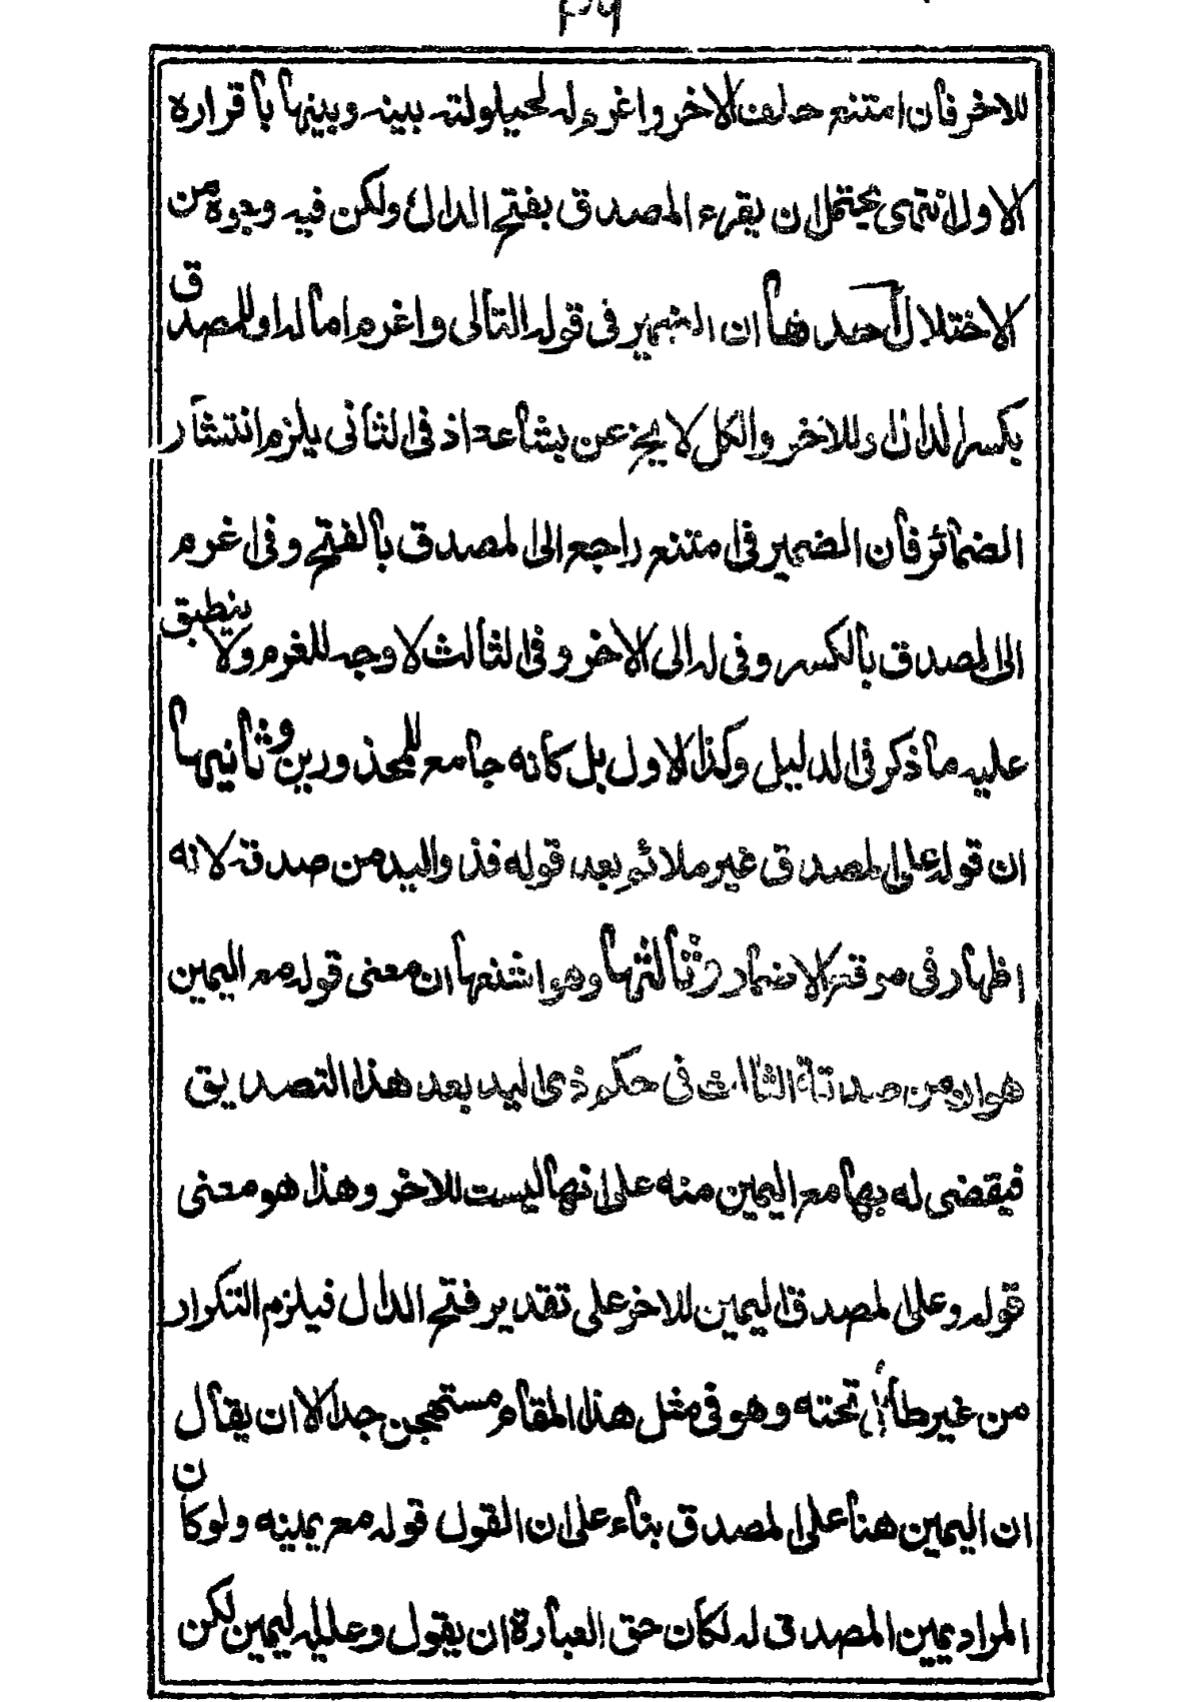 للاخر فأن امتنع حلف الاخر واغرم له لحيلولته بينه وبينها بأقراره
الاول انتهى يحتمل ان يقرء المصدق بفتح الدال ولكن فيه وجوه من
الاختلال احدها ان الضمير فى قوله التالى واغرم اما له او للمصدق
بكسر الدال او للاخر والكل لا يخ عن بشاعة اذ فى الثانى يلزم انتشار
الضمائر فأن الضمير فى امتنع راجع الى المصدق بالفتح وفى اغرم
الى المصدق بالكسر وفى له الى الاخر وفى الثالث لا وجه للغرم ولا ينطبق
عليه ما ذكر فى الدليل وكذا الاول بل كانه جامع للمحذورين وثانيها
ان قوله على المصدق غير ملائم بعد قوله فذو اليد من صدقه لانه
اظهار فى موقع الاضمار وثالثها وهو اشنعها ان معنى قوله مع اليمين
هو ان من صدقه الثالث فى حكم ذى اليد بعد هذا التصديق
فيقضى له بها مع اليمين منه على انها ليست للاخر وهذا هو معنى
قوله وعلى المصدق اليمين للاخر على تقدير فتح الدال فيلزم التكرار
من غير طائل تحته وهو فى مثل هذا المقام مستهجن جدا الا ان يقال
ان اليمين هنا على المصدق بناء على ان القول قوله مع يمينه ولو كان
المراد يمين المصدق له لكان حق العبارة ان يقول وعليه اليمين لكن